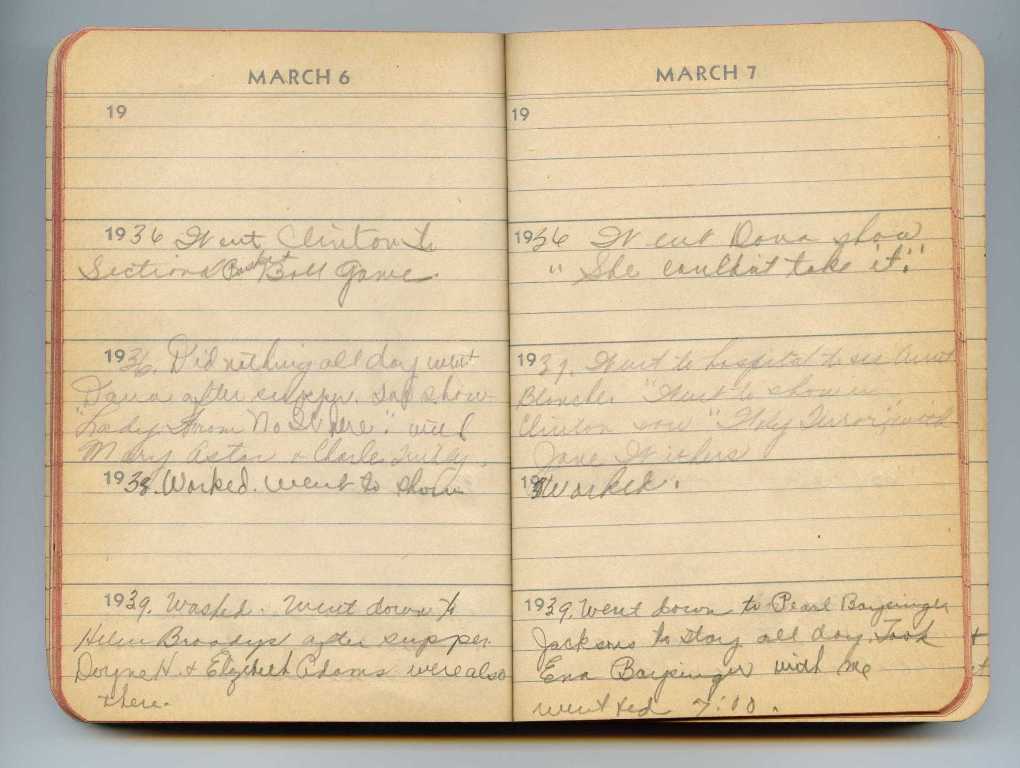 MARCH 6
19
1936 Went Clinton to
Sectional Basket Ball Game.
1936. Did nothing all day went
Dana after supper. Saw show
"Lady From No Where." with
Mary Astor & Charles
1938. Worked. Went to show
1939. Washed. Went down to
Helen after supper.
Doryne H. & Elizabeth Adams were also
there.
MARCH 7
19
1936 Went Dana show
"She couldn't take it."
1937. Went to hospital to see Aunt
Blanche. Went to show in
Clinton saw "Holy Terror" with
Jane Withers
1938 Worked.
1939. Went down to Pearl
Jacksons to stay all day. Took
Ena with me
went bed 7:00.